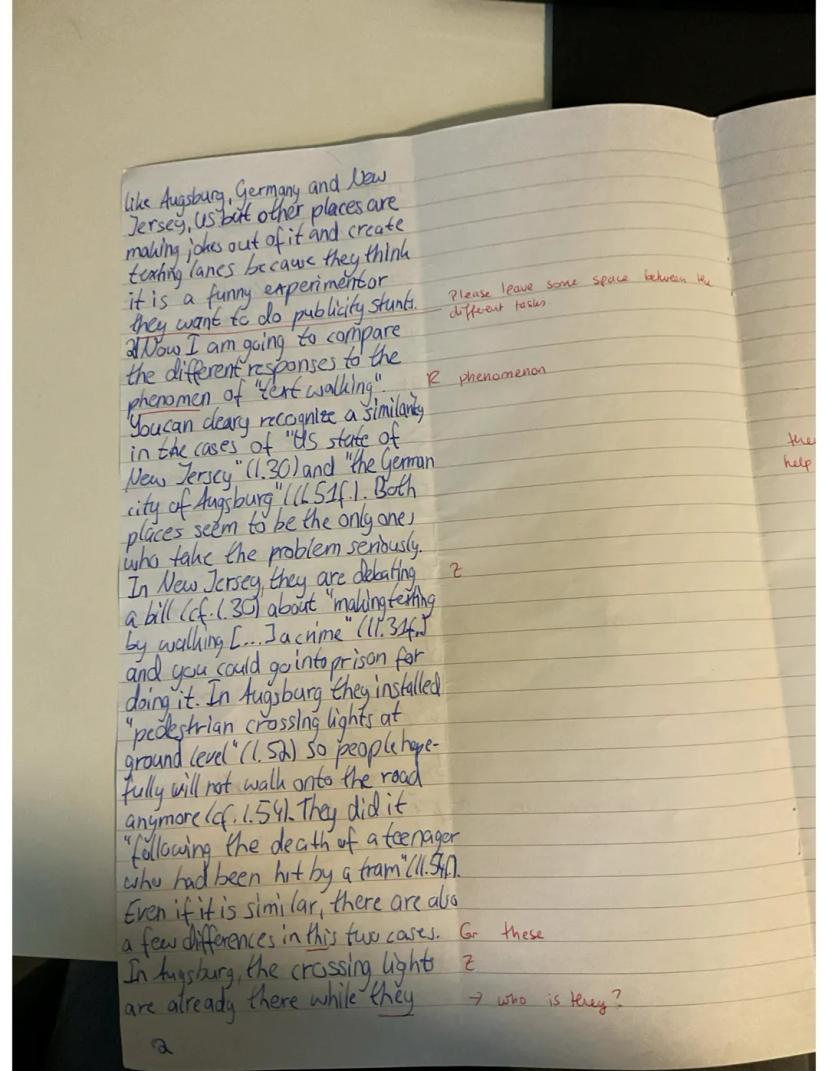 like Augsburg, Germany and New
Jersey, US but other places are
making jokes out of it and create
texting lanes because they think
it is a funny experiment or
they want to do publicity stunts.
Please leave some space between the
different tasks
2) Now I am going to compare
the different responses to the
phenomen of "text walking".
R phenomenon
You can cleary recognize a similarity
in the cases of "US state of
New Jersey" (l.30) and "the German
city of Augsburg" (ll.51f.). Both
places seem to be the only ones
who take the problem seriously.
In New Jersey, they are debating
Z
a bill (cf. l.30) about "making texting
by walking [...] a crime" (ll.31f.)
and you could go into prison for
doing it. In Augsburg they installed
"pedestrian crossing lights at
ground level" (l.52) so people hope-
fully will not walk onto the road
anymore (cf. l.54). They did it
"following the death of a teenager
who had been hit by a tram" (ll.54f.).
Even if it is similar, there are also
a few differences in this two cases.
Gr these
In Augsburg, the crossing lights
Z
are already there while they
→ who is they?
2
the
help